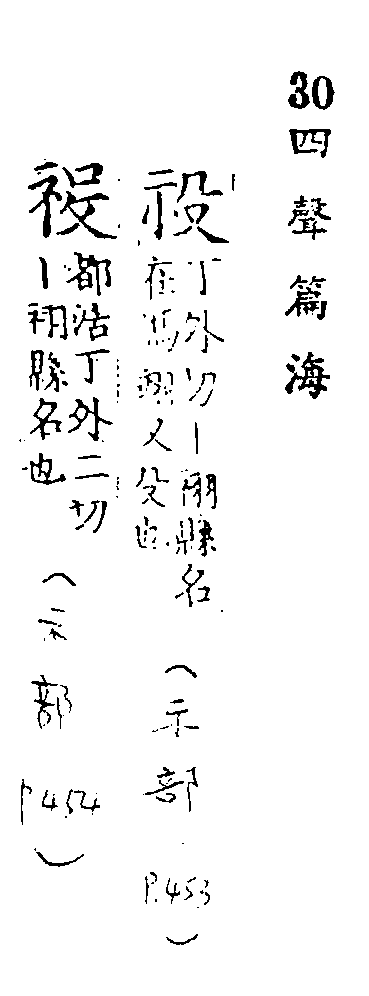 30四聲篇海
祋丁外切丨祤縣名
在馮翊又殳也
(示部P.453)
祋都活丁外二切
丨祤縣名也
(示部P454)